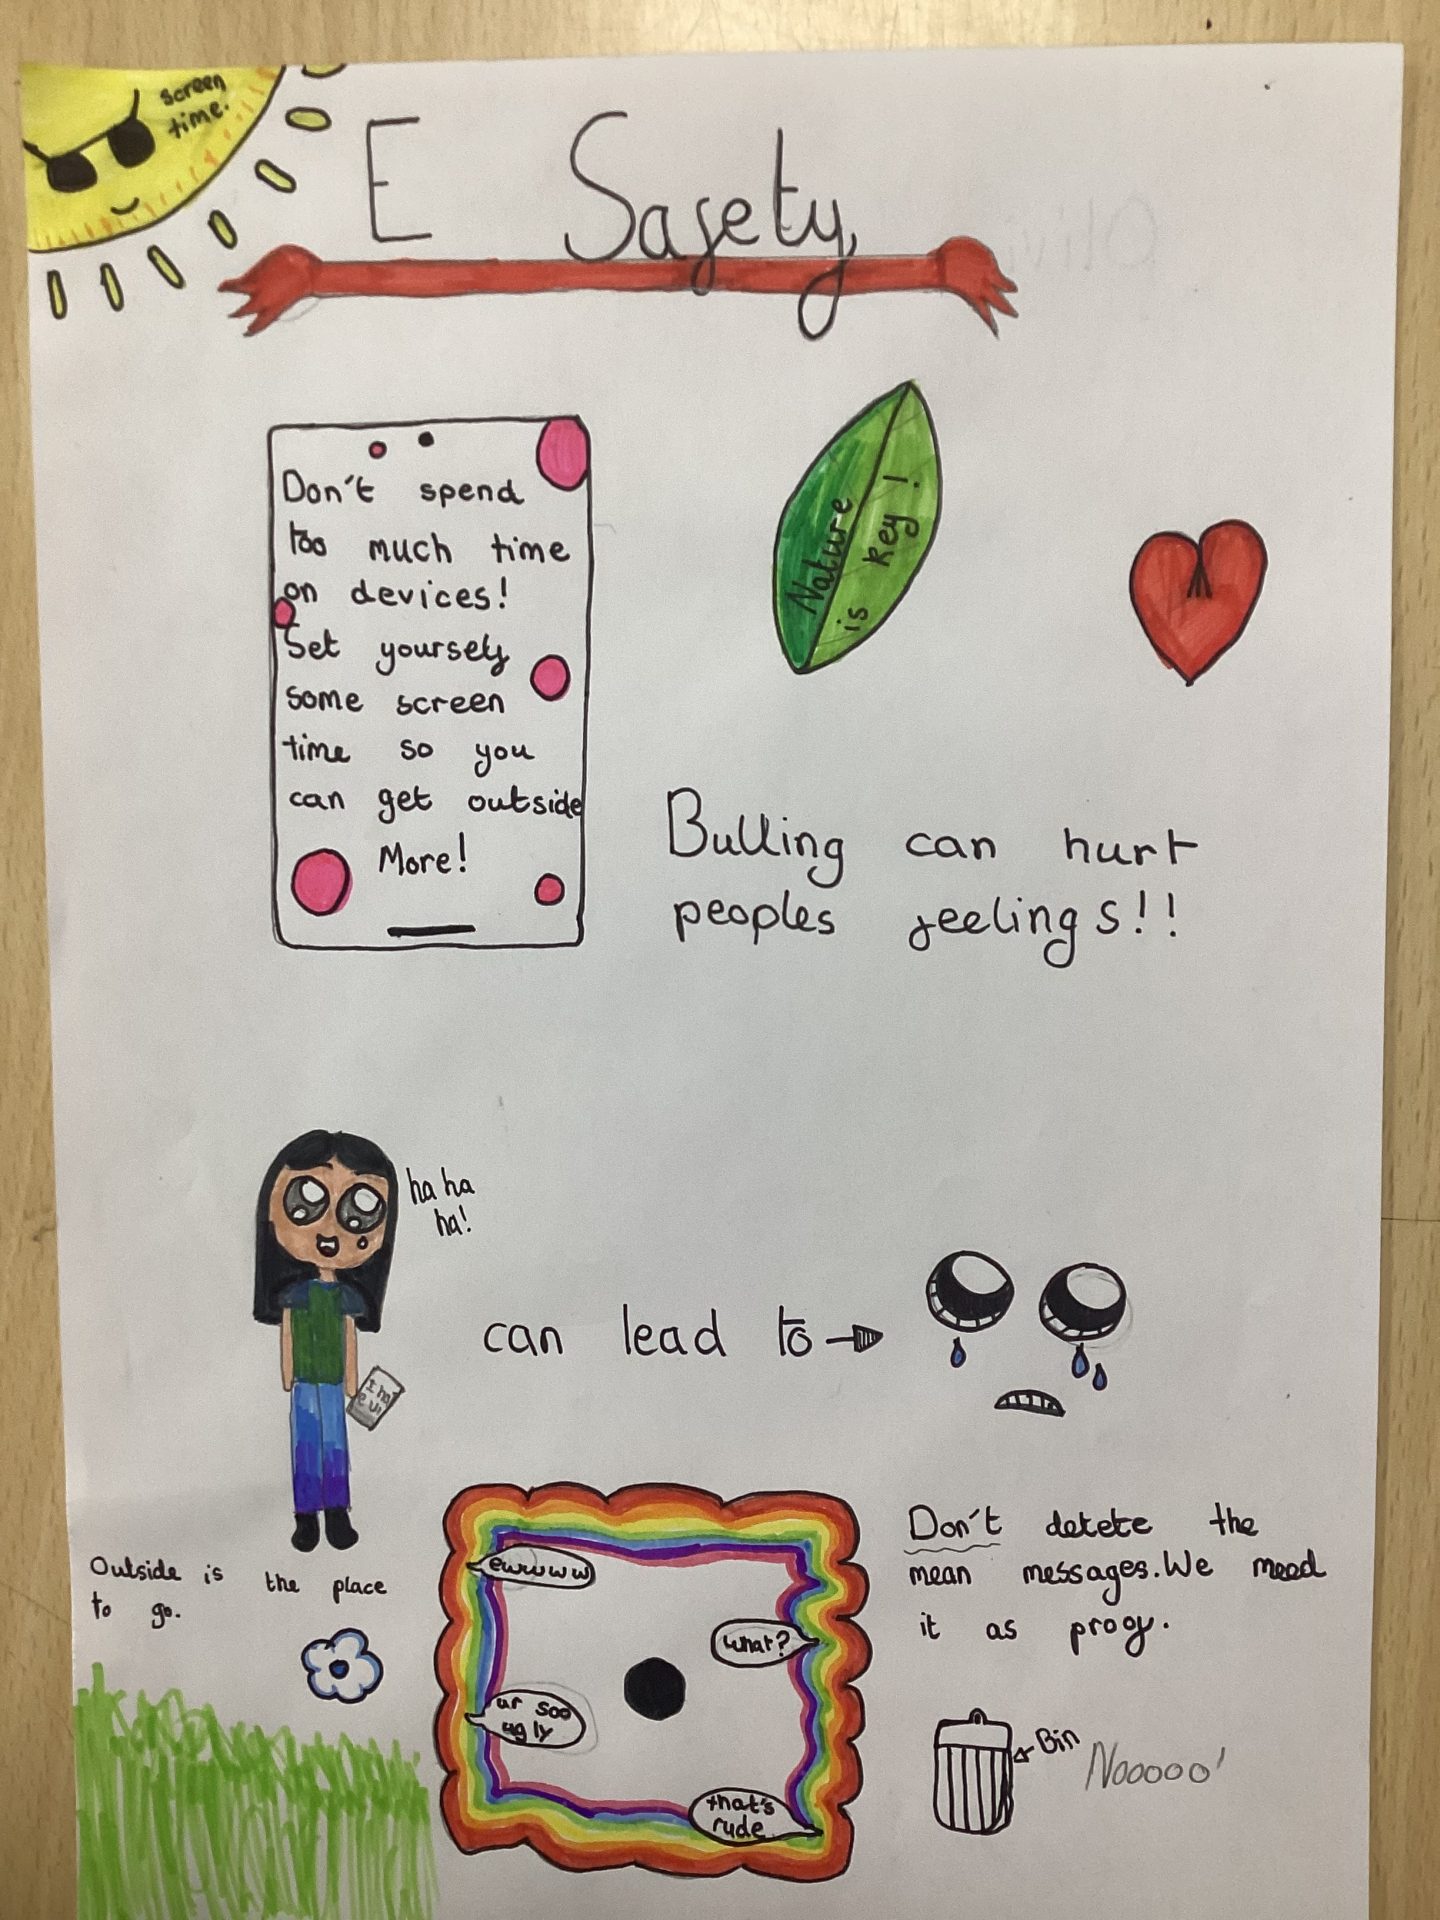 screen
time.
E Safety
Don't spend
too much time
on devices!
Set yourself
some screen
time so you
can get outside
More!
Nature
is key!
Bulling can hurt
peoples feelings!!
ha ha
ha!
can lead to
I ha
e u!
Outside is the place
to go.
ewwww
what?
ur soo
ugly
that's
rude
Don't detete the
mean messages. We meed
it as proof.
Bin
Nooooo'